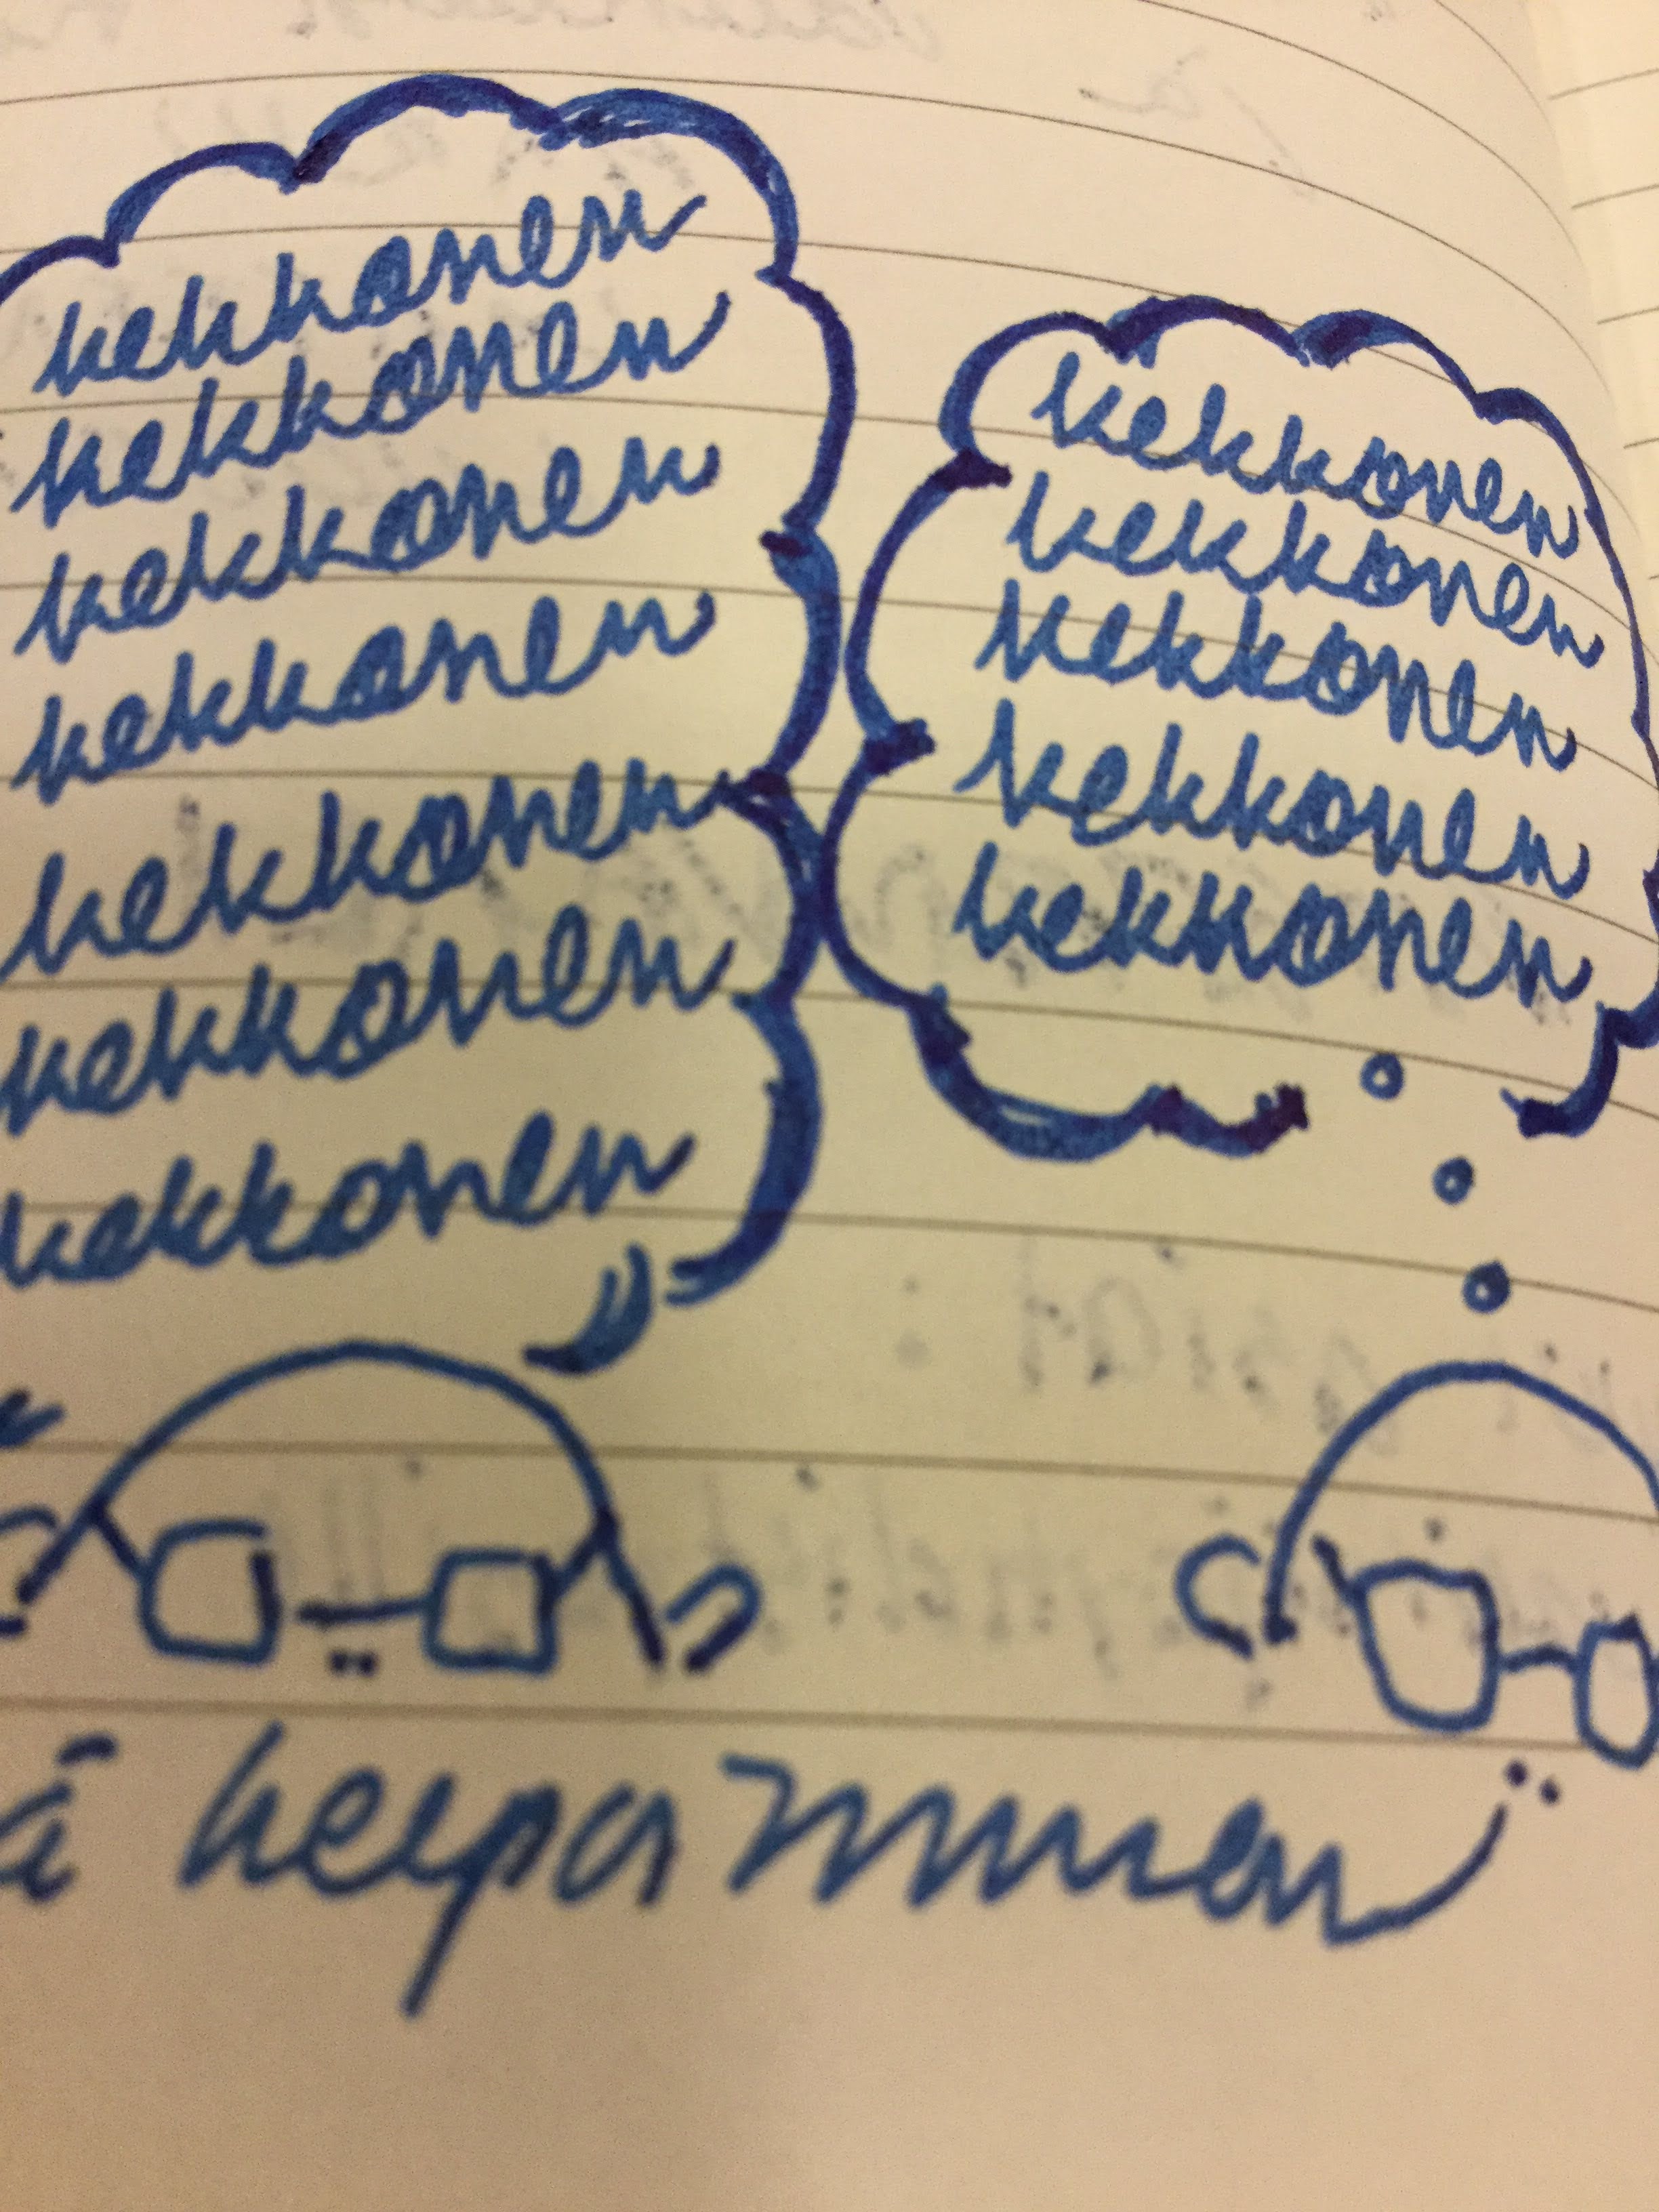 kekkonen
kekkonen
kekkonen
kekkonen
kekkonen
kekkonen
kekkonen
kekkonen
kekkonen
kekkonen
kekkonen
kekkonen